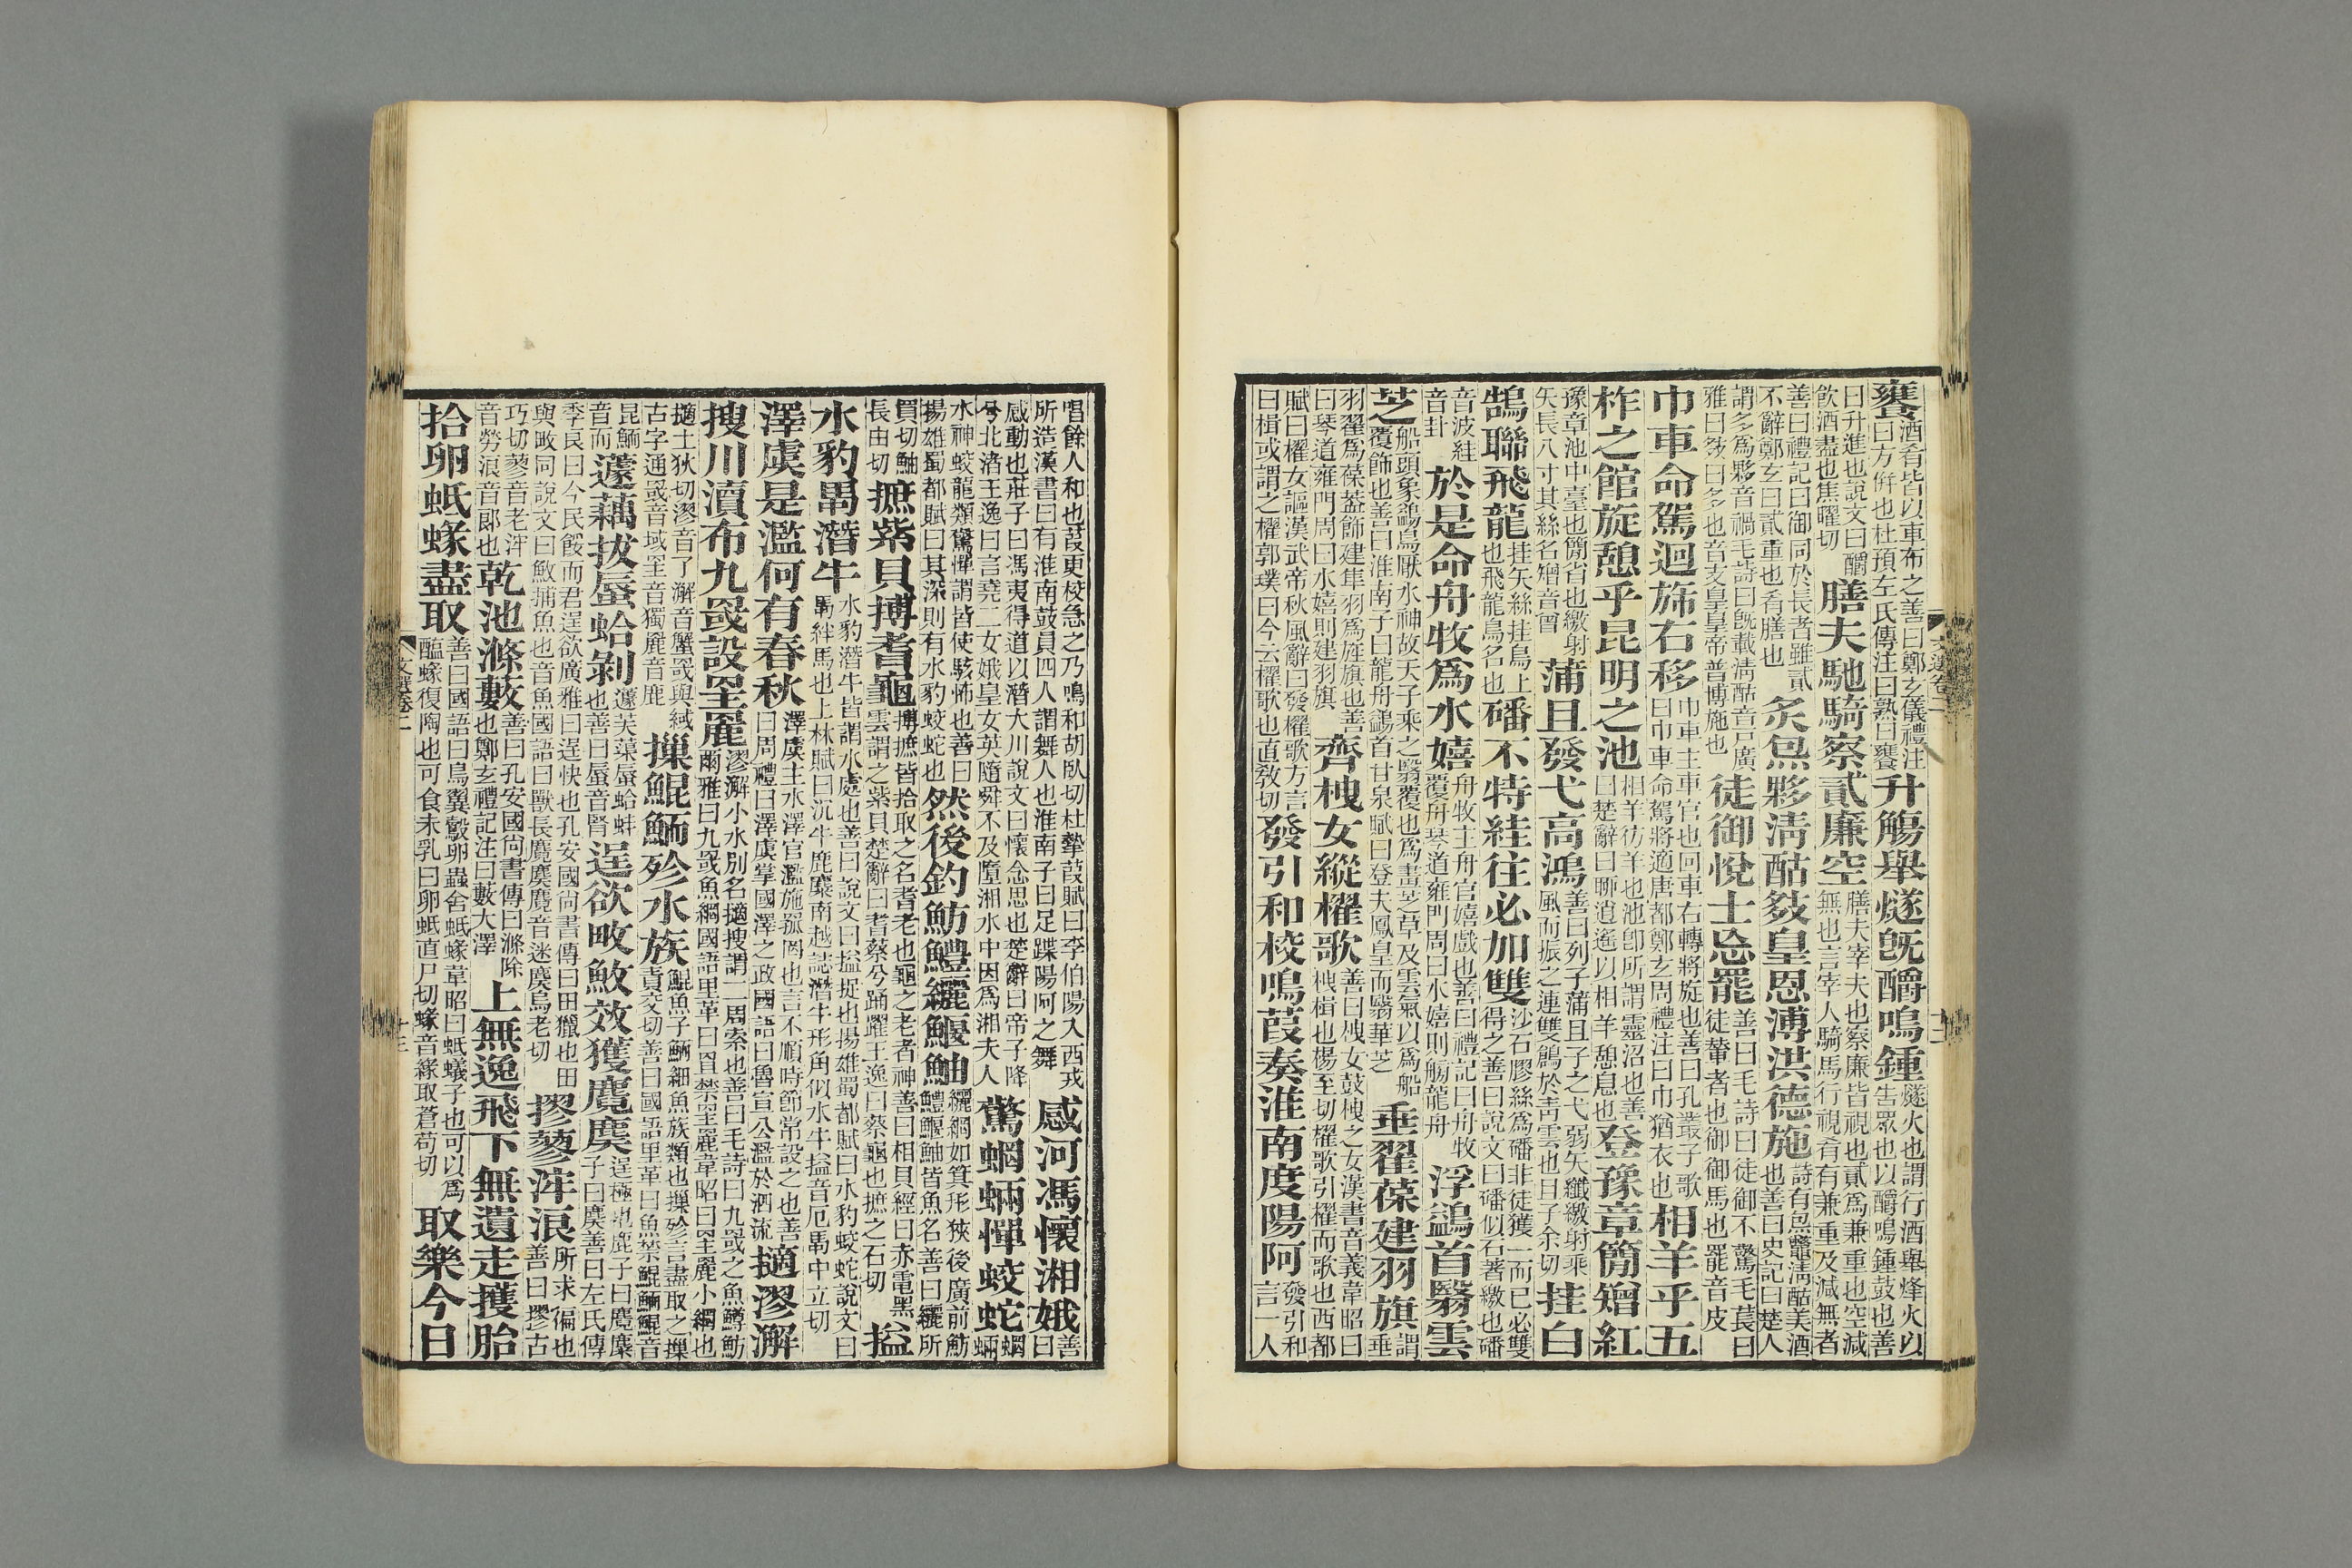 饔酒肴皆以車布之善曰鄭玄儀禮注曰方併也杜預左氏傳注曰熟曰饔升觴舉燧旣釂鳴鍾燧火也謂行酒舉烽火以告眾也以釂鳴鍾鼓也善
曰升進也說文曰釂飲酒盡也焦曜切膳夫馳騎察貳廉空膳夫宰夫也察廉皆視也貳爲兼重也空減無也言宰人騎馬行視肴有兼重及減無者
善曰禮記曰御同於長者雖貳不辭鄭玄曰貳重也肴膳也炙炰夥清酤皇恩溥洪德施詩有炰鼈清酤美酒也善曰史記曰楚人
謂多爲夥音禍毛詩曰旣載清酤音戶廣雅曰曰多也音支皇皇帝普博施也徒御悅士忘罷善曰毛詩曰徒御不驚毛萇曰徒輦者也御御馬也罷音皮
巾車命駕迴斾右移巾車主車官也回車右轉將旋也善曰孔叢子歌曰巾車命駕將適唐都鄭玄周禮注曰巾猶衣也相羊乎五
柞之館旋憩乎昆明之池相羊仿羊也池卽所謂靈沼也善曰楚辭曰聊逍遙以相羊憩息也登豫章簡矰紅
豫章池中臺也簡省也繳射矢長八寸其絲名矰音曾蒲且發弋高鴻善曰列子蒲且子之弋弱矢纖繳射乘風而振之連雙鶬於靑雲也且子余切挂白
鵠聯飛龍挂矢絲挂鳥上也飛龍鳥名也磻不特絓往必加雙沙石膠絲爲磻非徒獲一而已必雙得之善曰說文曰磻似石著繳也磻
音波絓音卦於是命舟牧爲水嬉舟牧主舟官嬉戲也善曰禮記曰舟牧覆舟琴道雍門周曰水嬉則舫龍舟浮鷁首翳雲
芝船頭象鷁鳥厭水神故天子乘之翳覆也爲畫芝草及雲氣以爲船覆飾也善曰淮南子曰龍舟鷁首甘泉賦曰登夫鳳皇而翳華芝垂翟葆建羽旗謂垂
羽翟爲葆葢飾建隼羽爲旌旗也善曰琴道雍門周曰水嬉則建羽旗齊栧女縱櫂歌善曰栧女鼓栧之女漢書音義韋昭曰栧楫也楊至切櫂歌引櫂而歌也西都
賦曰櫂女謳漢武帝秋風辭曰發櫂歌方言曰楫或謂之櫂郭璞曰今云櫂歌也直敎切發引和校鳴葭奏淮南度陽阿發引和言一人
文選卷二
唱餘人和也葭更校急之乃鳴和胡臥切杜摯葭賦曰李伯陽入西戎所造漢書曰有淮南鼓員四人謂舞人也淮南子曰足蹀陽阿之舞感河馮懷湘娥善曰
感動也莊子曰馮夷得道以潛大川說文曰懷念思也楚辭曰帝子降兮北渚王逸曰言堯二女娥皇女英隨舜不及墮湘水中因爲湘夫人驚蝄蜽憚蛟蛇蝄蜽
水神蛟龍類驚憚謂皆使駭怖也善曰揚雄蜀都賦曰其深則有水豹蛟蛇也然後釣魴鱧纚鰋鮋纚網如箕形狹後廣前魴鱧鰋鮋皆魚名善曰纚所
買切鮋長由切摭紫貝搏耆龜搏摭皆拾取之名耆老也龜之老者神善曰相貝經曰赤電黑雲謂之紫貝楚辭曰耆蔡兮踊躍王逸曰蔡龜也摭之石切搤
水豹馽潛牛水豹潛牛皆謂水處也善曰說文曰搤捉也揚雄蜀都賦曰水豹蛟蛇說文曰馽絆馬也上林賦曰沉牛鹿麋南越誌潛牛形角似水牛搤音厄馽中立切
澤虞是濫何有春秋澤虞主水澤官濫施罛罔也言不順時節常設之也善曰周禮曰澤虞掌國澤之政國語曰魯宣公濫於泗流擿漻澥
搜川瀆布九罭設罜䍡漻澥小水別名擿搜謂一一周索也善曰毛詩曰九罭之魚鱒魴爾雅曰九罭魚網國語里革曰罝禁罜䍡韋昭曰罜䍡小網也
擿土狄切漻音了澥音蟹罭與緎古字通罭音域罜音獨䍡音鹿摷鯤鮞殄水族鯤魚子鮞細魚族類也摷殄言盡取之摷責交切善曰國語里革曰魚禁鯤鮞鯤音
昆鮞音而蘧藕拔蜃蛤剝蘧芙蕖蜃蛤蚌也善曰蜃音腎逞欲畋䰻效獲麑麌逞極也鹿子曰麑麋子曰麌善曰左氏傳
季良曰今民餒而君逞欲廣雅曰逞快也孔安國尙書傳曰田獵也田與畋同說文曰䰻捕魚也音魚國語曰獸長麑麌麑音迷麌烏老切摎蓼浶浪所求徧也善曰摎古
巧切蓼音老浶音勞浪音郎也乾池滌藪善曰孔安國尙書傳曰滌除也鄭玄禮記注曰藪大澤上無逸飛下無遺走擭胎
拾卵蚳蝝盡取善曰國語曰鳥翼鷇卵蟲舍蚳蝝韋昭曰蚳蟻子也可以爲醢蝝復陶也可食未乳曰卵蚳直尸切蝝音緣取蒼苟切取樂今日
文選卷二
十三